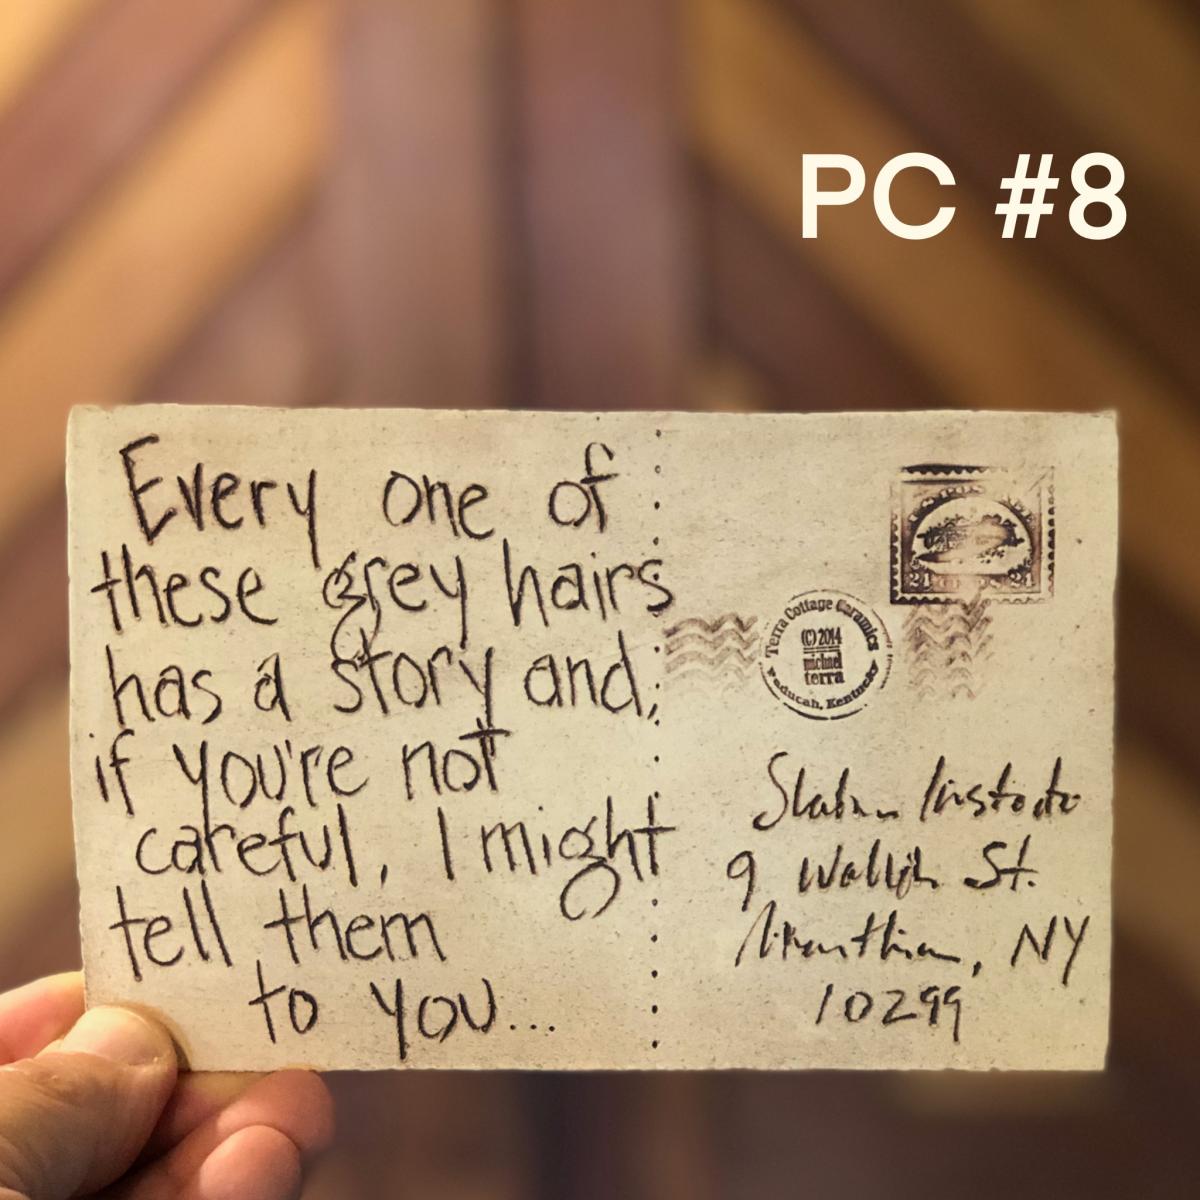 PC #8
Every one of
these grey hairs
has a story and,
if you're not
careful, I might
tell them
to you...
Terra Cottage Ceramics
(C) 2014
michael
terra
Paducah, Kentucky
24 24
9 St.
, NY
10299